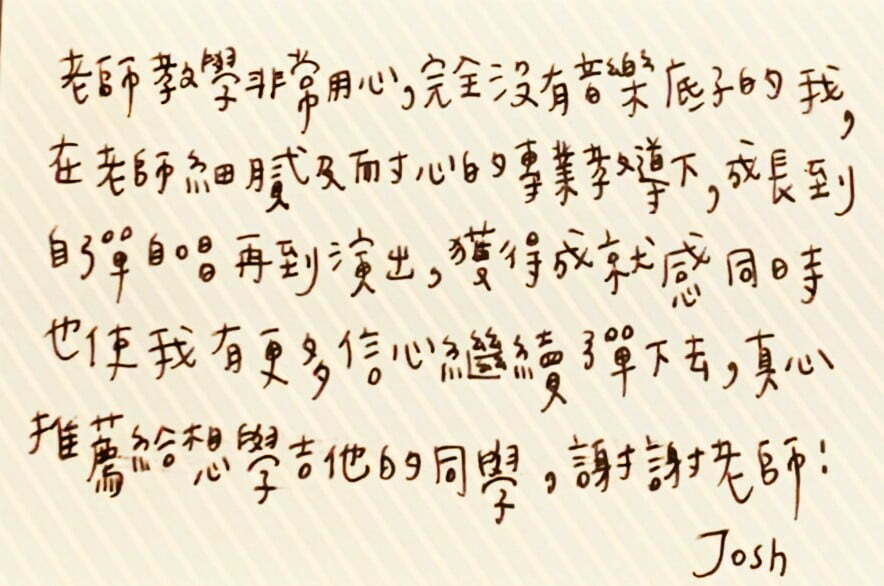 老師教學非常用心,完全沒有音樂底子的我,
在老師細膩及耐心的專業教導下,成長到
自彈自唱再到演出,獲得成就感同時
也使我有更多信心繼續彈下去,真心
推薦給想學吉他的同學,謝謝老師!
Josh